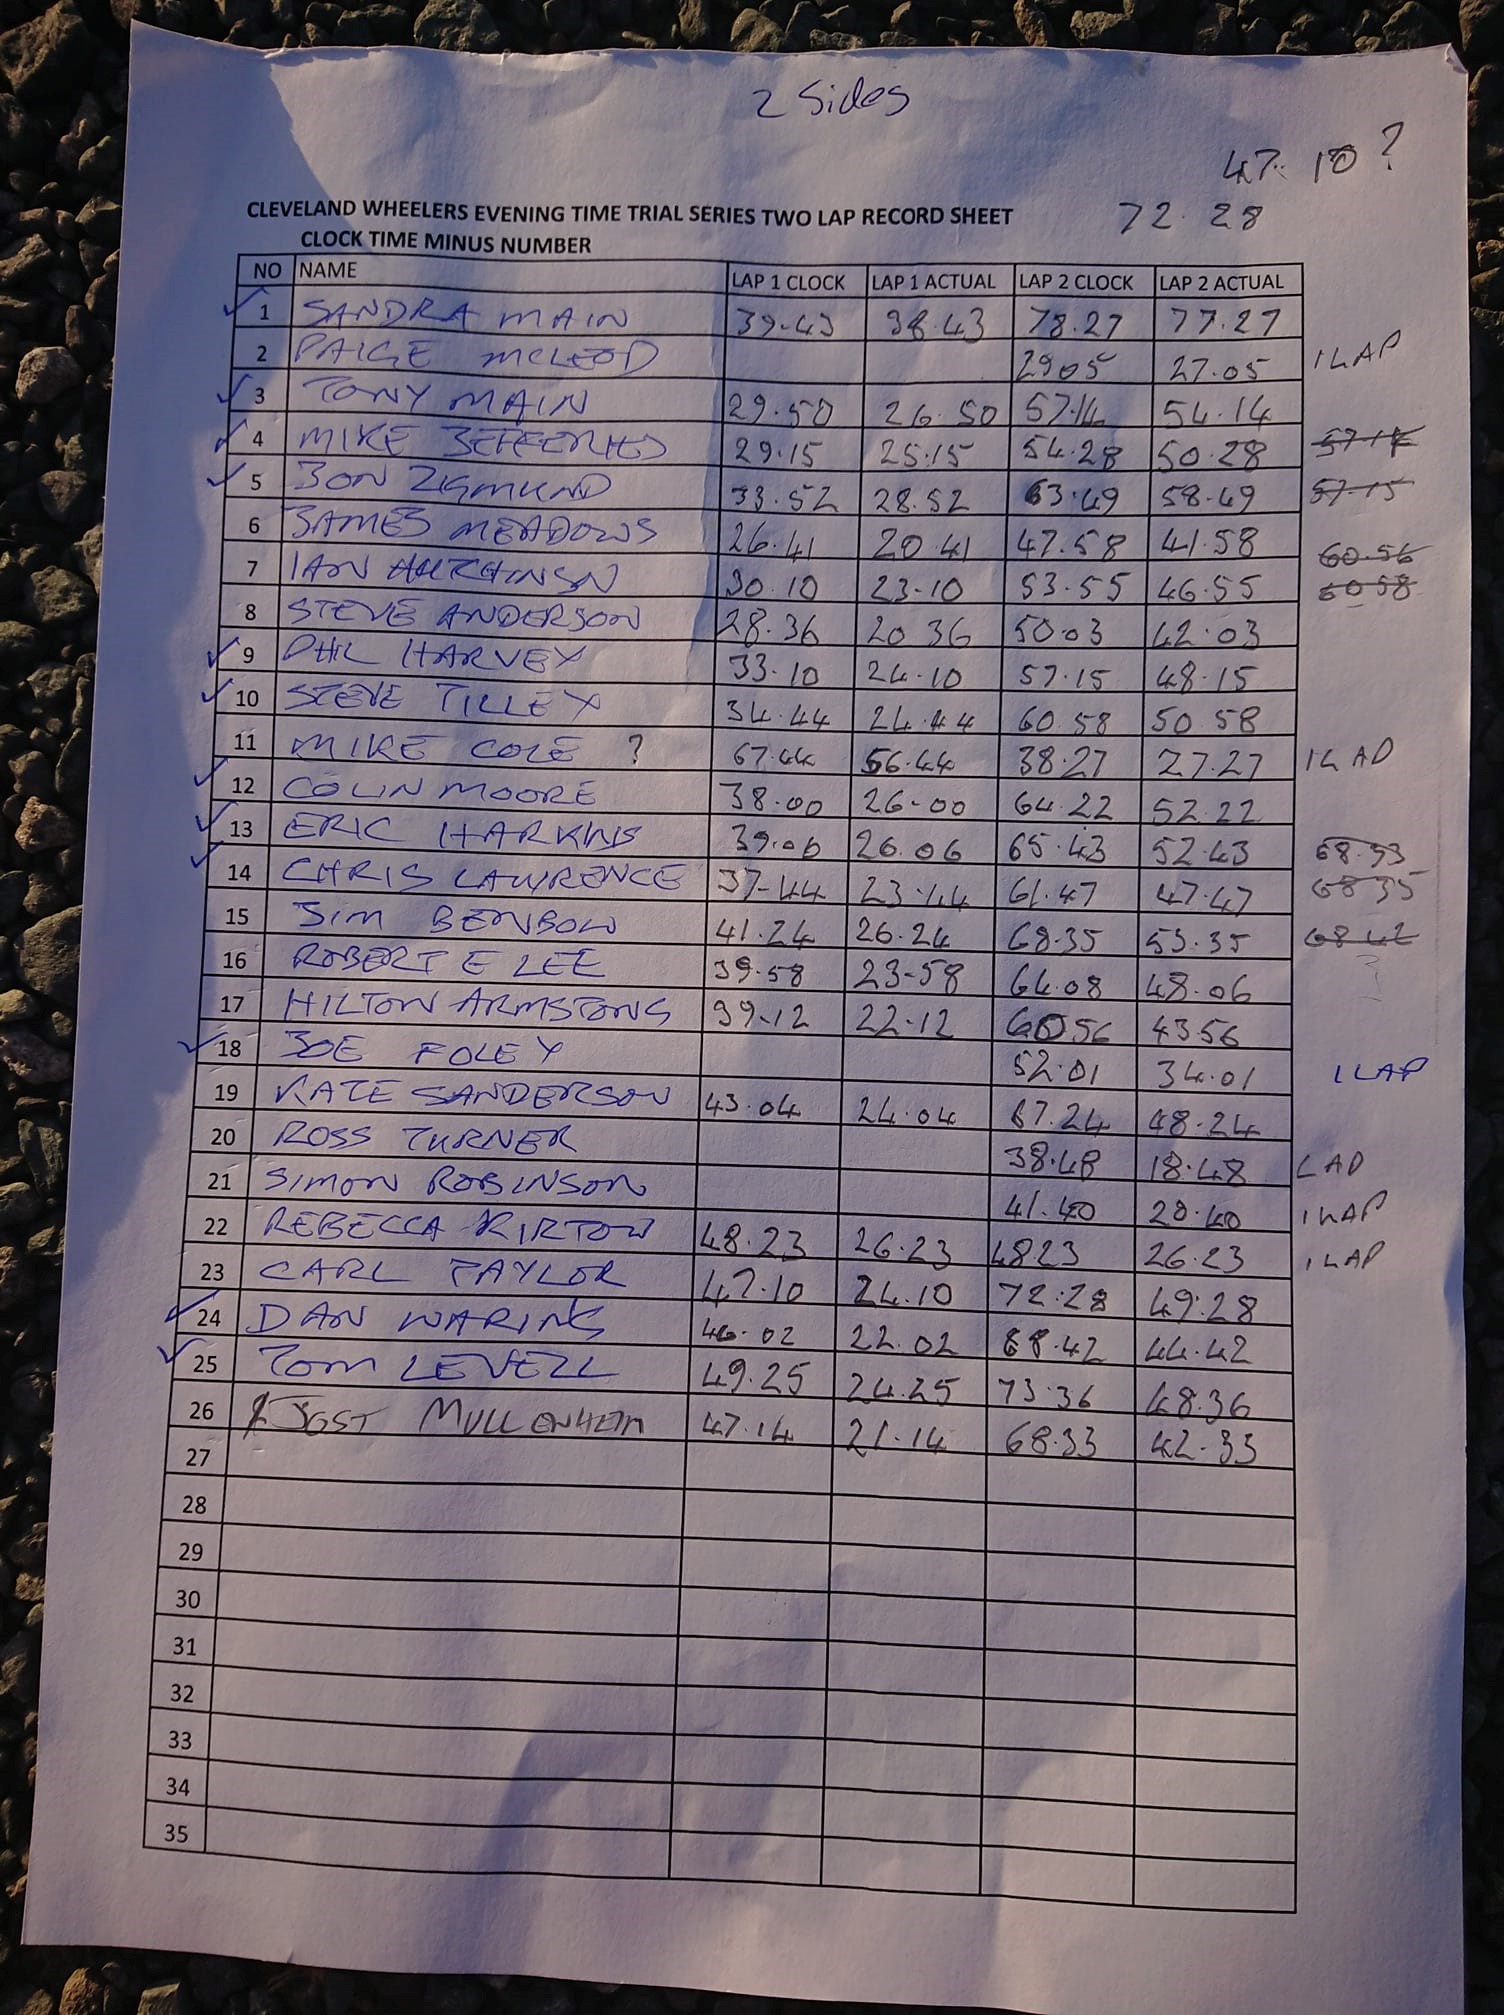 2 Sides
47.10 ?
CLEVELAND WHEELERS EVENING TIME TRIAL SERIES TWO LAP RECORD SHEET 72.28
CLOCK TIME MINUS NUMBER
NO NAME LAP 1 CLOCK LAP 1 ACTUAL LAP 2 CLOCK LAP 2 ACTUAL
✓ 1 SANDRA MAIN 39.43 38.43 78.27 77.27
2 PAIGE MCLEOD 29 05 27.05 1 LAP
✓ 3 TONY MAIN 29.50 26.50 57.14 54.14
✓ 4 MIKE JEFFERIES 29.15 25.15 54.28 50.28 57.14
✓ 5 JON ZIGMUND 33.52 28.52 63.49 58.49 57.15
6 JAMES MEADOWS 26.41 20.41 47.58 41.58 60.56
7 IAN HUTCHINSON 30.10 23.10 53.55 46.55 60 58
8 STEVE ANDERSON 28.36 20 36 50 03 42.03
✓ 9 PHIL HARVEY 33.10 24.10 57.15 48.15
✓ 10 STEVE TILLEY 34.44 24.44 60.58 50 58
11 MIKE COLE ? 67.44 56.44 38.27 27.27 1 LAP
✓ 12 COLIN MOORE 38.00 26-00 64.22 52.22
✓ 13 ERIC HARKINS 39.06 26.06 65.43 52.43 68.33
✓ 14 CHRIS LAWRENCE 37-44 23.44 61.47 47.47 68 35
15 JIM BENBOW 41.24 26.24 68.35 53.35 68 42
16 ROBERT E LEE 39.58 23-58 64.08 48.06
17 HILTON ARMSTONG 39.12 22.12 60 56 43 56
✓ 18 JOE FOLEY 52.01 34.01 1 LAP
19 KATE SANDERSON 43.04 24.04 67.24 48.24
20 ROSS TURNER 38.48 18.48 LAP
21 SIMON ROBINSON 41.40 20.40 1 LAP
22 REBECCA KIRTON 48.23 26.23 4823 26.23 1 LAP
23 CARL TAYLOR 47.10 24.10 72.28 49.28
✓ 24 DAN WARING 46.02 22.02 68.42 44.42
✓ 25 TOM LEVELL 49.25 24.25 73.36 48.36
26 JOST MULLENHEIM 47.14 21.14 68.33 42.33
27
28
29
30
31
32
33
34
35